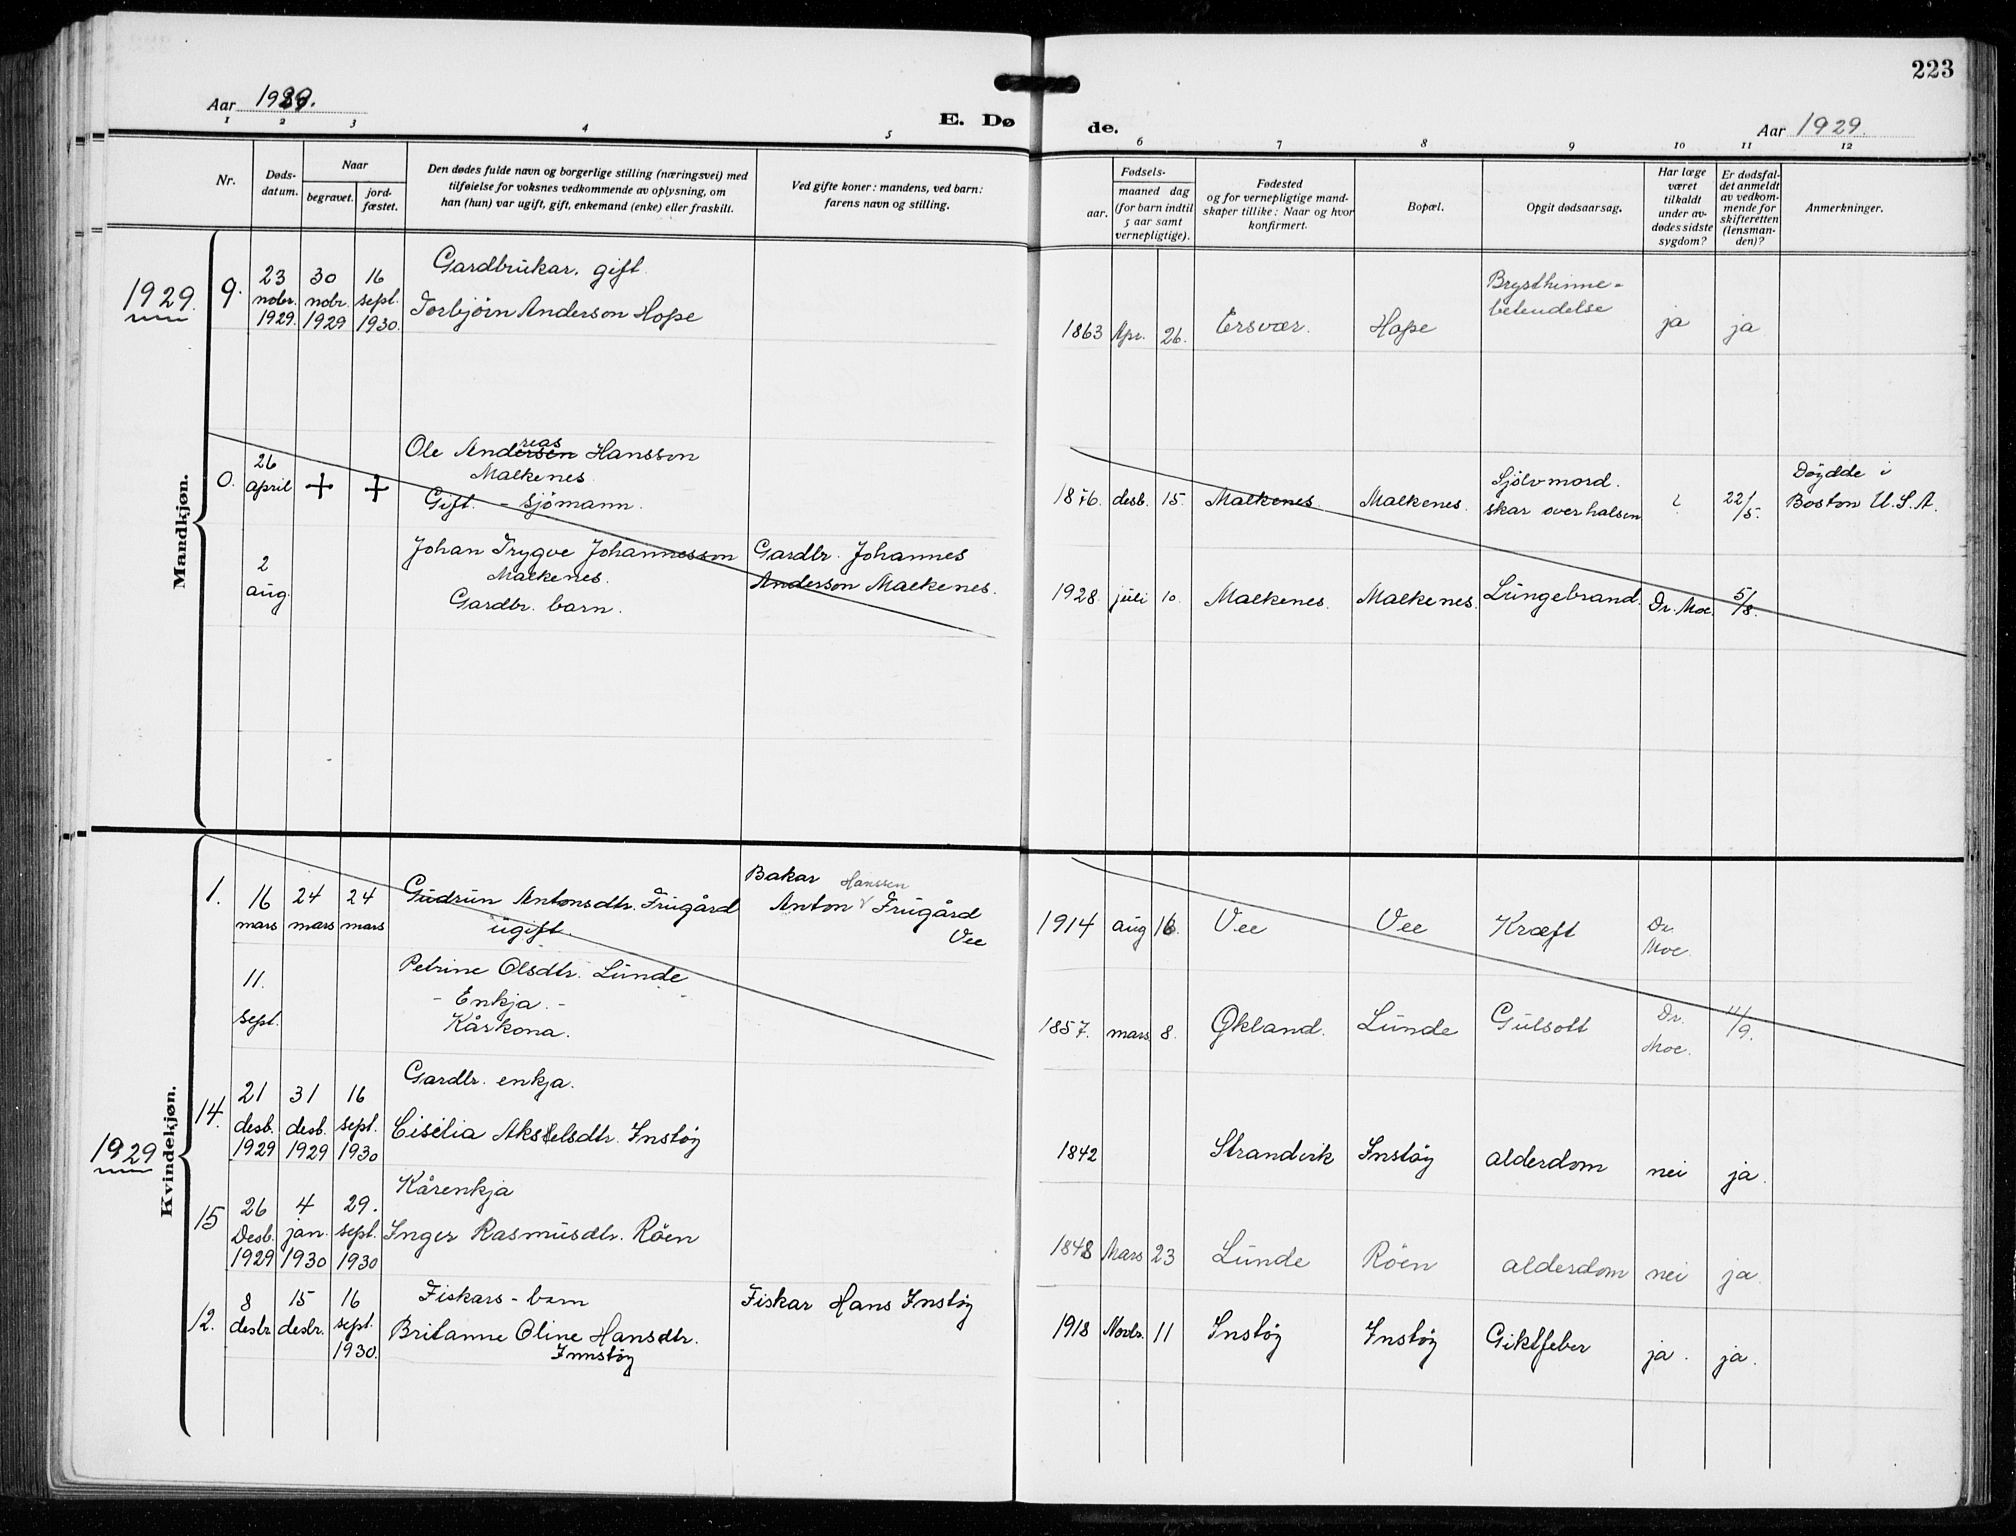 223
Aar 1929.
E. Dø
de.
Aar 1929.
1 2 3 4 5 6 7 8 9 10 11 12
Nr.
Døds-
datum.
Naar
begravet.
jord-
fæstet.
Den dødes fulde navn og borgerlige stilling (næringsvei) med
tilføielse for voksnes vedkommende av oplysning, om
han (hun) var ugift, gift, enkemand (enke) eller fraskilt.
Ved gifte koner: mandens, ved barn:
farens navn og stilling.
Fødsels-
aar.
maaned dag
(for barn indtil
5 aar samt
vernepligtige).
Fødested
og for vernepligtige mand-
skaper tillike: Naar og hvor
konfirmert.
Bopæl.
Opgit dødsaarsag.
Har læge
været
tilkaldt
under av-
dødes sidste
sygdom?
Er dødsfal-
det anmeldt
av vedkom-
mende for
skifteretten
(lensman-
den)?
Anmerkninger.
Mandkjøn.
1929.
9. 23 nobr. 1929. 30 nobr. 1929 16 sept. 1930.
Gardbrukar, gift.
Torbjörn Anderson Hope
1863 Apr. 26. Ersvær. Hope
Brysthinne-
betendelse
ja ja
0. 26 april + +
Ole Andersen reas Hansson
Malkenes.
Gift. - sjömann.
1876. desb. 15. Malkenes. Malkenes.
Sjölvmord.
skar over halsen
? 22/5.
Döydde i
Boston U.S.A.
2 aug.
Johan Trygve Johannesson
Malkenes.
Gardbr. barn.
Gardbr. Johannes
Anderson Malkenes.
1928. juli 10. Malkenes. Malkenes. Lungebrand. Dr. Moe. 5/8.
Kvindekjøn.
1. 16 mars 24 mars 24 mars
Gudrun Antonsdtr. Frugård
ugift.
Bakar Hanssen
Anton Frugård
Vee
1914 aug 16. Vee Vee Kræft Dr. Moe.
11. sept.
Petrine Olsdtr. Lunde
- Enkja. -
Kårkona.
1857. mars 8. Økland. Lunde Gulsott Dr. Moe. 11/9.
1929
14. 21 desb. 1929 31 desb. 1929 16 sept. 1930
Gardbr. enkja.
Cisilia Akselsdtr. Instöy
1842 Strandvik Instöy alderdom nei ja.
15 26 Desb. 1929 4 jan. 1930 29. sept. 1930
Kårenkja
Inger Rasmusdtr. Röen
1848 Mars 23 Lunde Röen alderdom nei ja.
12. 8 desbr 15 desbr. 16 sept. 1930.
Fiskars - barn
Britanne Oline Hansdtr.
Innstöy
Fiskar Hans Instöy
1918 Novbr. 11 Instöy Instöy Giktfeber ja. ja.